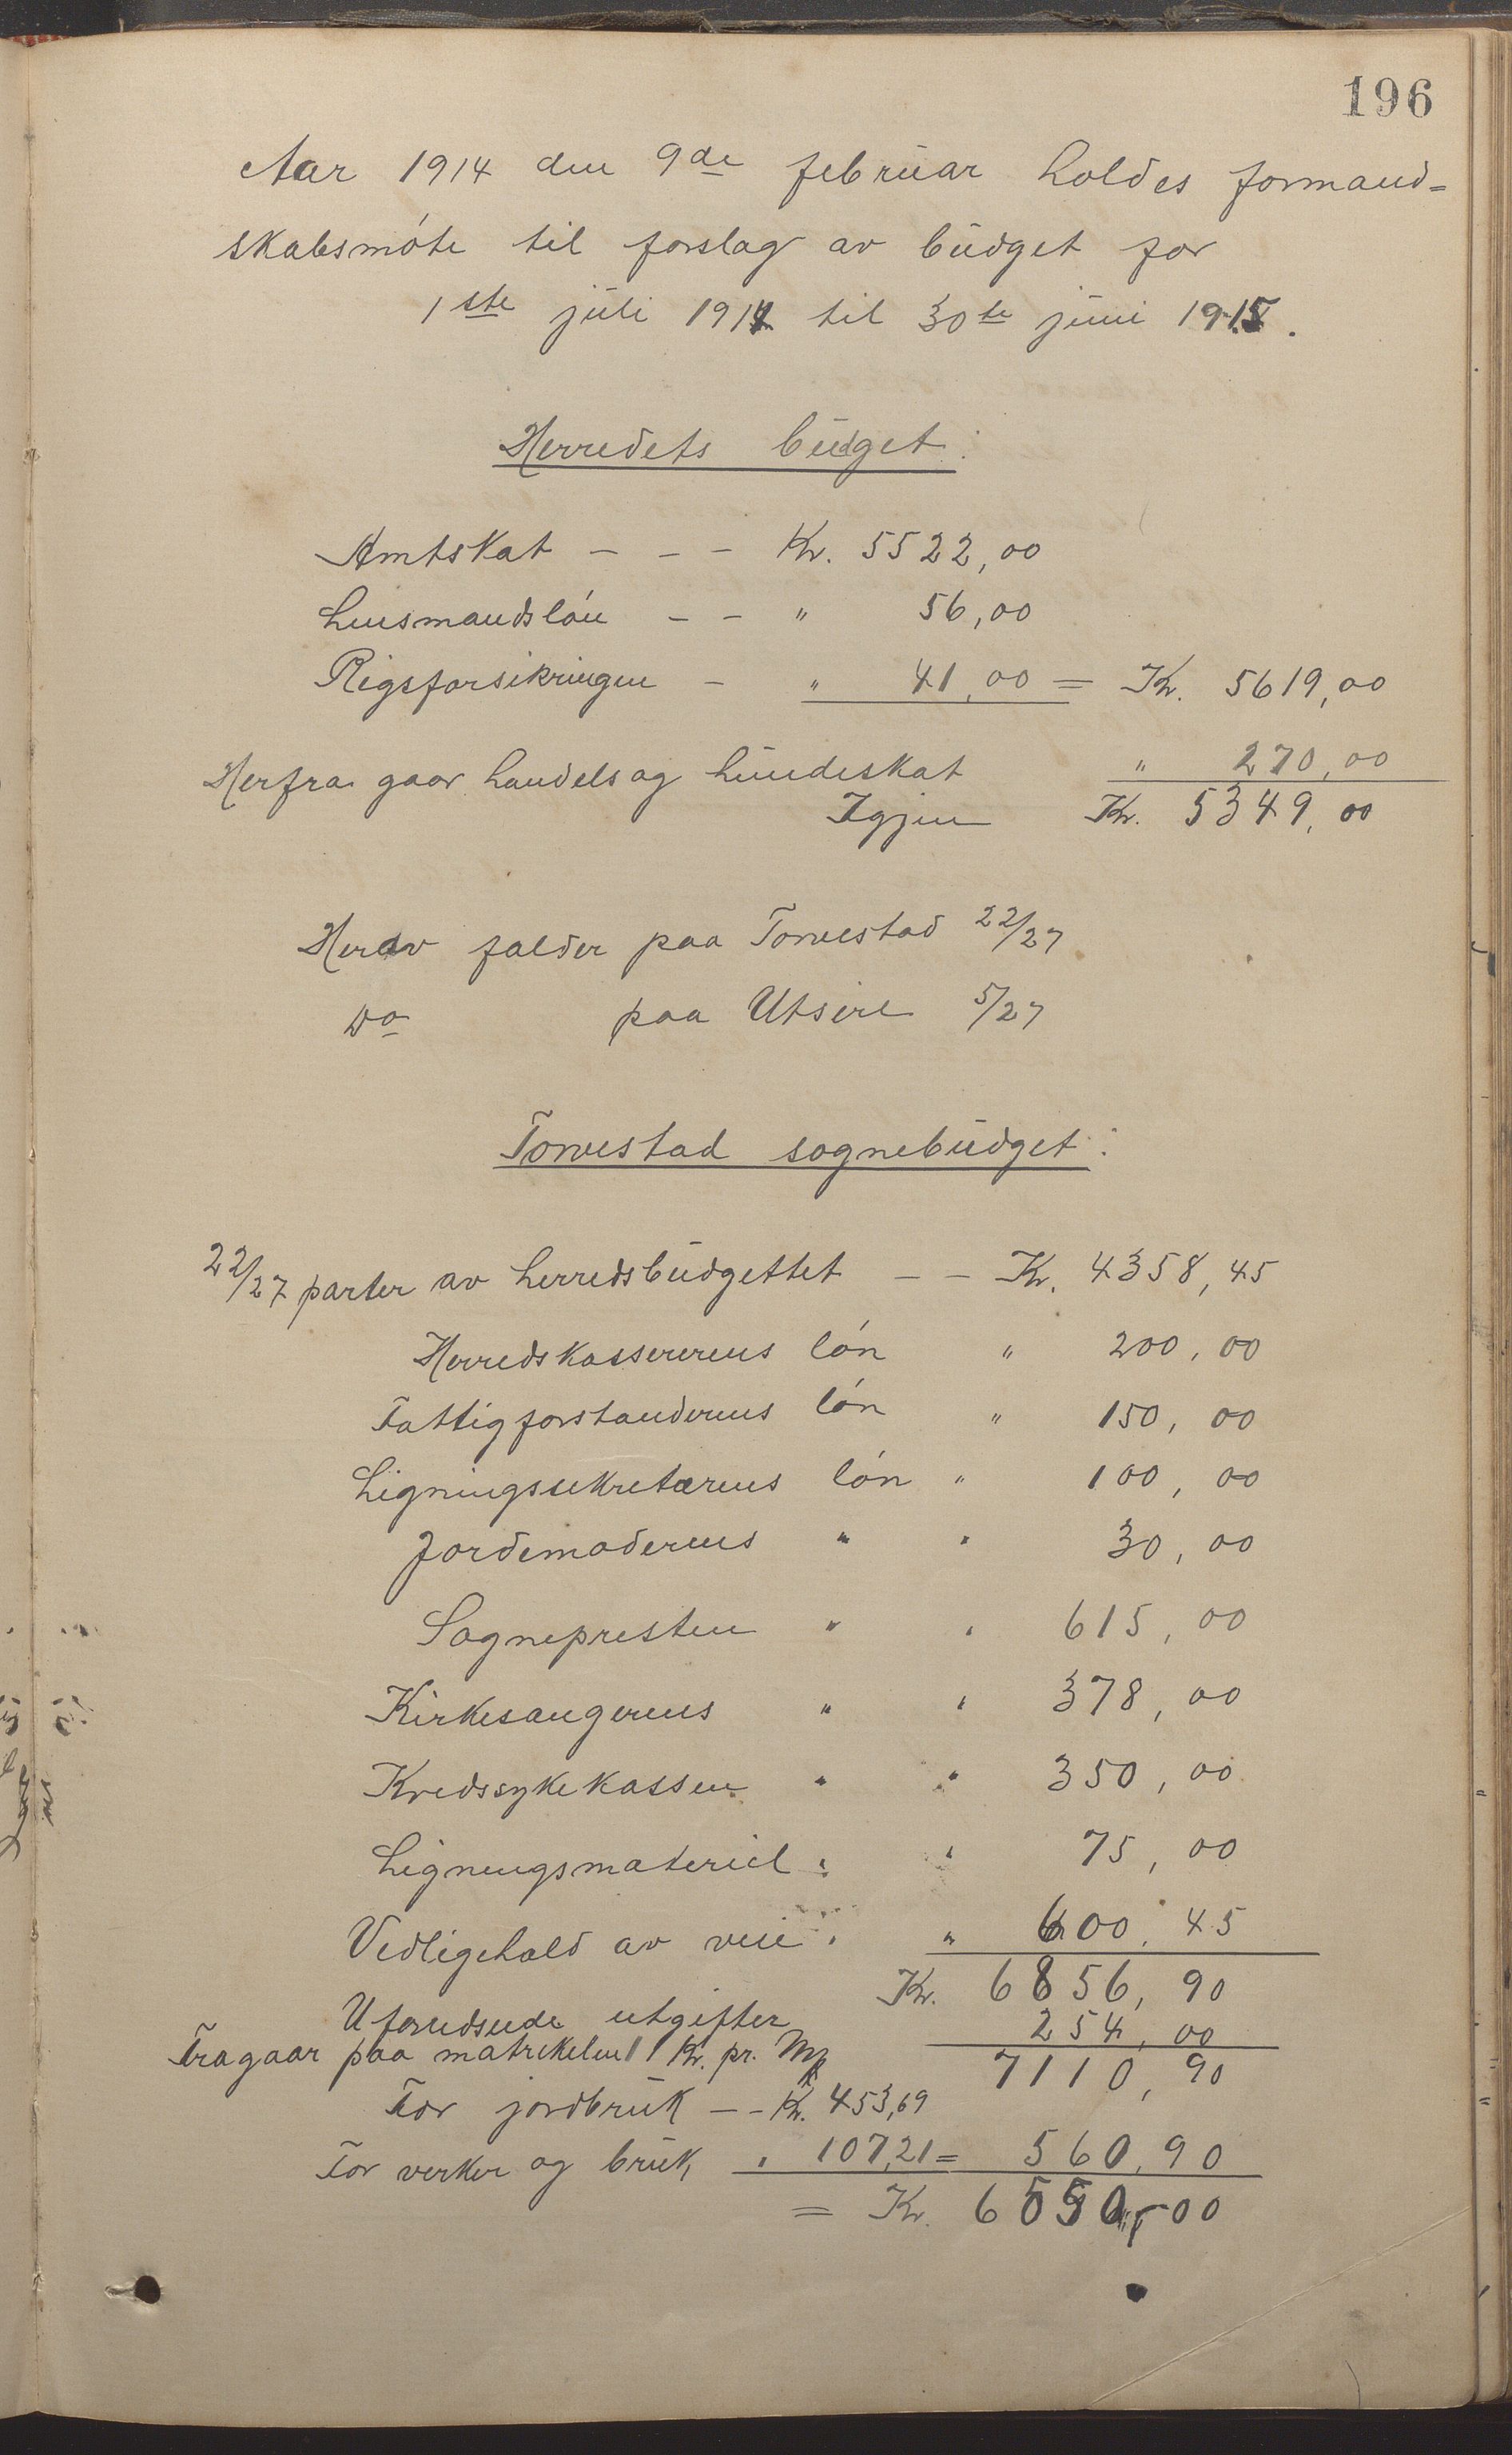 196
Aar 1914 den 9de februar holdes formand-
skabsmöte til forslag av budget for
1ste juli 1914 til 30te juni 1915.
Herredets budget:
Amtskat - - - Kr. 5522,00
Lensmandslön - - " 56,00
Rigsforsikringen - " 41,00 = Kr. 5619,00
Herfra gaar handels og hundeskat " 270,00
Igjen Kr. 5349,00
Herav falder paa Torvestad 22/27
Do paa Utsire 5/27
Torvestad sognebudget:
22/27 parter av herredsbudgettet - - Kr. 4358,45
Herredskassererens lön " 200,00
Fattigforstanderens lön " 150,00
Ligningssekretærens lön " 100,00
Jordemoderens " " 30,00
Sognepresten " " 615,00
Kirkesangerens " " 378,00
Kredssykekassen " " 350,00
Ligningsmateriel " " 75,00
Vedligehold av veie " " 600,45
Kr. 6856,90
Uforudseede utgifter 254,00
Fragaar paa matrikelen 1 Kr. pr. Mk 7110,90
For jordbruk - - Kr. 453,69
For verker og bruk " 107,21 = 560,90
= Kr. 6550,00